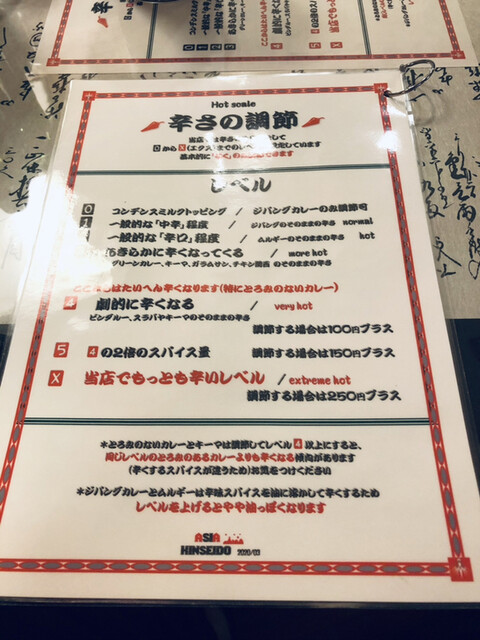 Hot scale
辛さの調節
当店では辛さ
0 から X (エクス)までのレベル 設定しています
基本的に
レベル
0 コンデンスミルクトッピング / ジパングカレーのみ調節可
一般的な「中辛」程度 / ジパングのそのままの辛さ normal
一般的な「辛口」程度 / ムルギーのそのままの辛さ hot
きらかに辛くなってくる / more hot
グリーンカレー、キーマ、ガラムサン、チキン関西 のそのままの辛さ
たいへん辛くなります(特にとろみのないカレー)
4 劇的に辛くなる / very hot
ビンダルー、スラバヤキーマのそのままの辛さ
調節する場合は100円プラス
5 4 の2倍のスパイス量 調節する場合は150円プラス
X 当店でもっとも辛いレベル / extreme hot
調節する場合は250円プラス
*とろみのないカレーとキーマは調節してレベル 4 以上にすると、
同じレベルのとろみのあるカレーよりも辛くなる傾向があります
(辛くするスパイスが違うため)お気をつけください
*ジパングカレーとムルギーは辛味スパイスを油に溶かして辛くするため
レベルを上げるとやや油っぽくなります
ASIA
HINSEIDO 2020/03